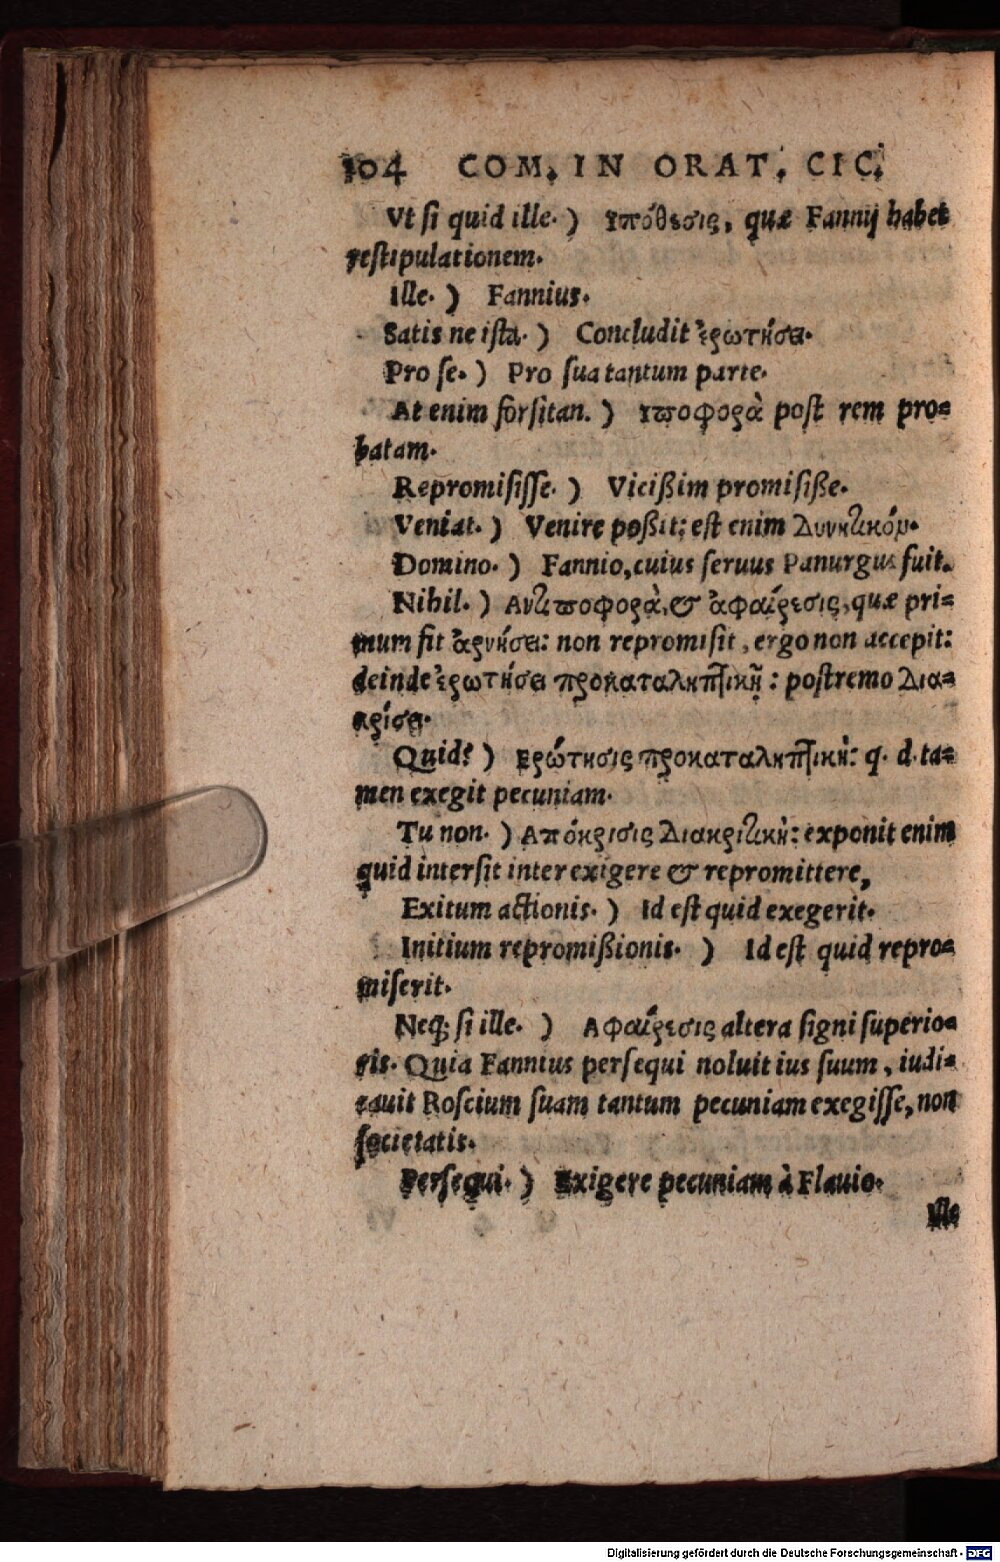 104 COM. IN ORAT. CIC.
Vt si quid ille. ) Ὑπόθεσις, quæ Fannij habet
restipulationem.
Ille. ) Fannius.
Satis ne ista. ) Concludit ἐρωτήσει.
Pro se. ) Pro sua tantum parte.
At enim forsitan. ) Ὑποφορὰ post rem pro=
batam.
Repromisisse. ) Vicißim promisiße.
Veniat. ) Venire poßit: est enim δυνητικόν.
Domino. ) Fannio, cuius seruus Panurgus fuit.
Nihil. ) Ἀντιποφορὰ, & ἀφαίρεσις, quæ pri=
mum fit ἀρνήσει: non repromisit, ergo non accepit:
deinde ἐρωτήσει προκαταληπτικῇ: postremo δια=
κρίσει.
Quid? ) Ἐρώτησις προκαταληπτικὴ: q. d. ta=
men exegit pecuniam.
Tu non. ) Ἀπόκρισις διακριτικὴ: exponit enim
quid intersit inter exigere & repromittere,
Exitum actionis. ) Id est quid exegerit.
Initium repromißionis. ) Id est quid repro=
miserit.
Neq; si ille. ) Ἀφαίρεσις altera signi superio=
ris. Quia Fannius persequi noluit ius suum, iudi=
cauit Roscium suam tantum pecuniam exegisse, non
societatis.
Persequi. ) Exigere pecuniam à Flauio.
Ille
Digitalisierung gefördert durch die Deutsche Forschungsgemeinschaft - DFG